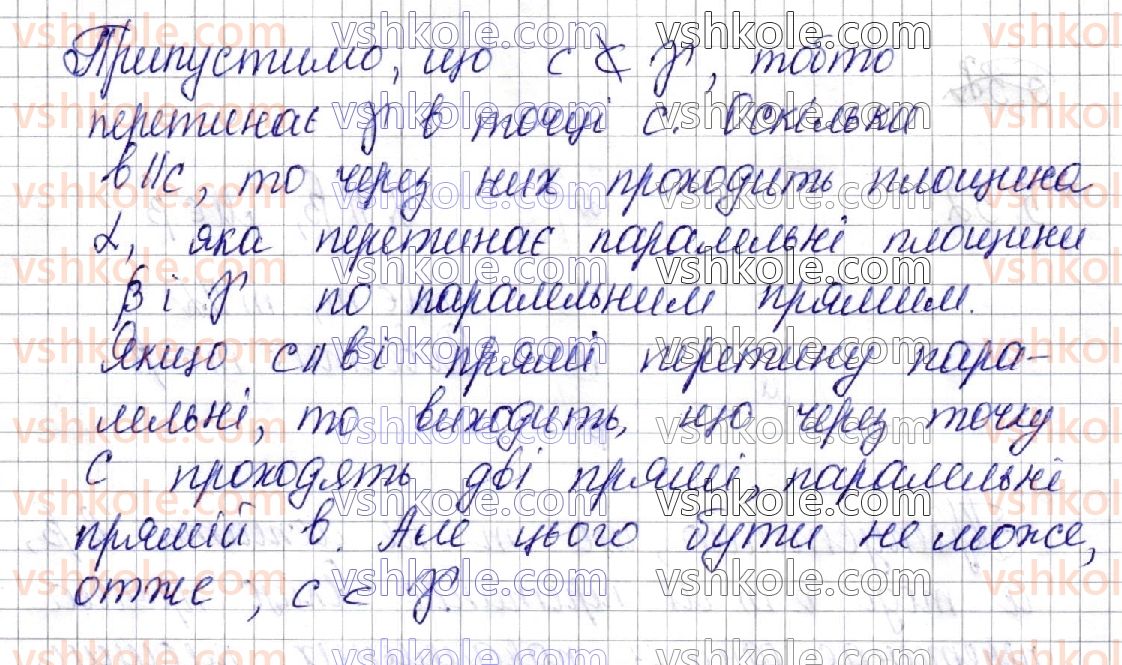 Припустимо, що c ⊄ γ, тобто
перетинає γ в точці C. Оскілька
в||c, то через них проходить площина
α, яка перетинає паралельні площини
β і γ по паралельним прямим.
Якщо c || в і прямі перетину пара-
лельні, то виходить, що через точку
C проходять дві прямі, паралельні
прямій в. Але цього бути не може,
отже, c ⊂ γ.
vshkole.com